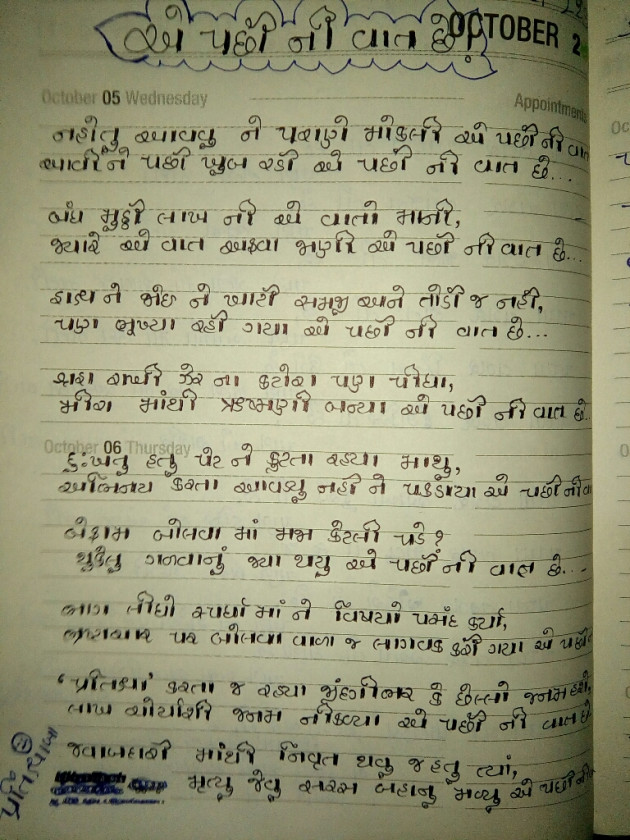 એ પછી ની વાત છે!
OCTOBER 2
October 05 Wednesday
Appointments
નહોતુ આવવુ ને પરાણે મોકલી એ પછી ની વાત
આવી ને પછી ખુબ રડી એ પછી ની વાત છે...
બંધ મુઠ્ઠી લાખ ની એ વાતો માની,
જ્યારે એ વાત અફવા જાણી એ પછી ની વાત છે...
ને ખાટી સમજી અને તોડી જ નહી,
પણ ભૂખ્યા રહી ગયા એ પછી ની વાત છે...
રાખી ઝેર ના કટોરા પણ પીધા,
મીરા માંથી રુક્ષ્મણી બન્યા એ પછી ની વાત છે
October 06 Thursday
દુ:ખતુ હતુ પેટ ને કુટતા રહ્યા માથુ,
અભિનય કરતા આવડ્યુ નહી ને પકડાયા એ પછી ની વા
બેફામ બોલવા માં મજા કેટલી પડે?
થુકેલુ ગળવાનું જ્યા થયુ એ પછી ની વાત છે...
ભાગ લીધો સ્પર્ધા માં ને વિષયો પસંદ કર્યા,
ભ્રષ્ટાચાર પર બોલવા વાળા જ લાગવક કરી ગયા એ પછી
'પ્રતિક્ષા' કરતા જ રહ્યા જીંદગીભર કે છેલ્લો જનમ હશે,
લાખ ચોર્યાશી જનમ નીકળ્યા એ પછી ની વાત છે
જવાબદારી માંથી નિવૃત થવુ જ હતુ ત્યાં,
મૃત્યુ જેવુ સરસ બહાનુ મળ્યુ એ પછી ની